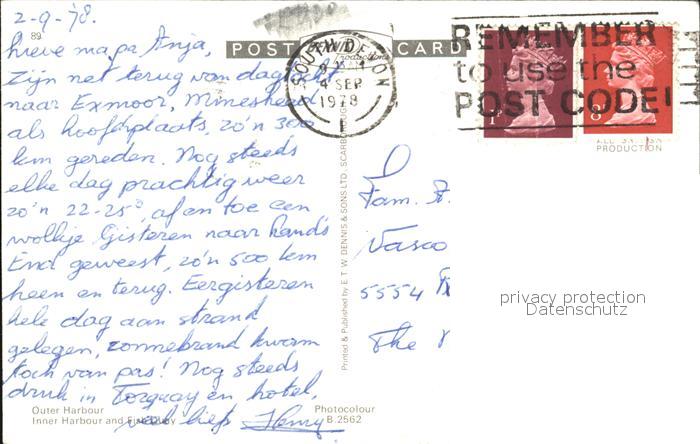 2-9-'78.
89
POST CARD
lieve ma, pa, Anja,
Zijn net terug van dagtocht
naar Exmoor, Minehead
als hoofdplaats, zo'n 300
km gereden. Nog steeds
elke dag prachtig weer
zo'n 22-25°, af en toe een
wolkje. Gisteren naar Land's
End geweest, zo'n 500 km
heen en terug. Eergisteren
hele dag aan strand
gelegen, zonnebrand kwam
toch van pas! Nog steeds
druk in Torquay en hotel,
veel liefs Henny
SOUTH DEVON
4 SEP
1978
REMEMBER
to use the
POST CODE!
1P
8
PRODUCTION
Printed & Published by E. T. W. DENNIS & SONS LTD., SCARBOROUGH
Fam. A.
Vasco
5554
The
privacy protection
Datenschutz
Outer Harbour
Inner Harbour and Fish Quay
Photocolour
B.2562